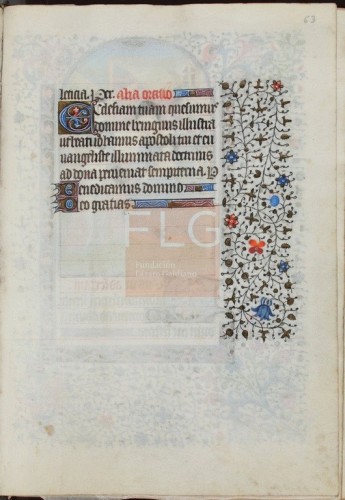 63
letitia. Per. Alia oratio
Ecclesiam tuam quesumus
domine benignus illustra
ut beati iohannis apostoli tui et eu
uangeliste illuminata doctrinis
ad dona perueniat sempiterna. P
Benedicamus domino
Deo gratias
FLG
Fundación
Lázaro Galdiano